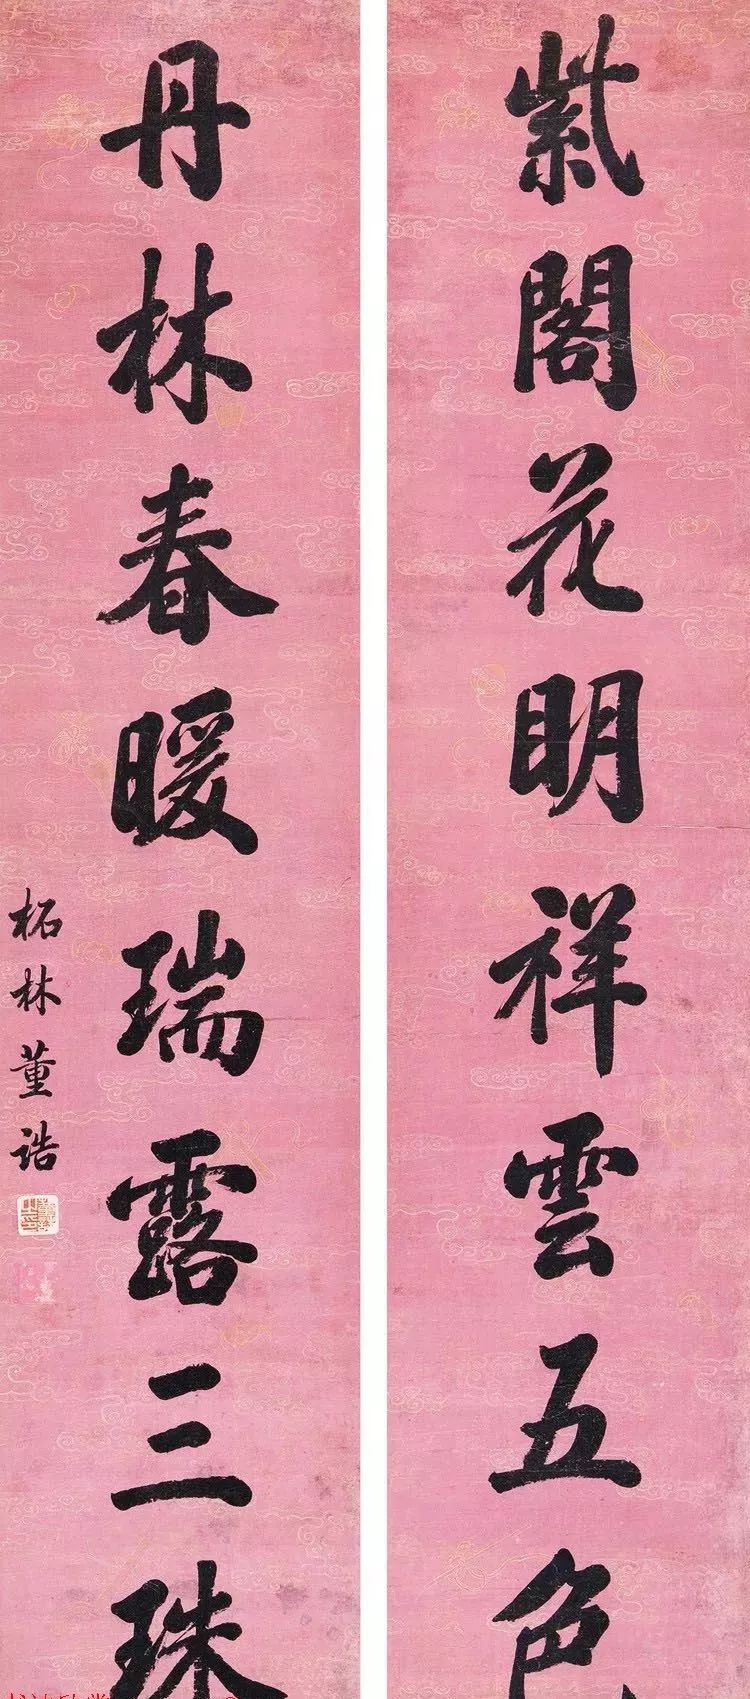 紫閣花明祥雲五色
丹林春暖瑞露三珠
柘林董誥